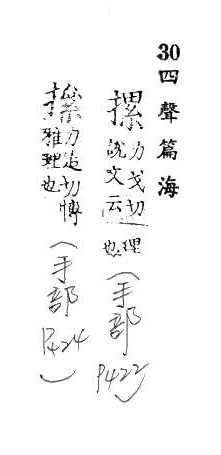 30四聲篇海
摞力戈切說文云理也(手部P422)
力追切愽雅理也(手部P424)